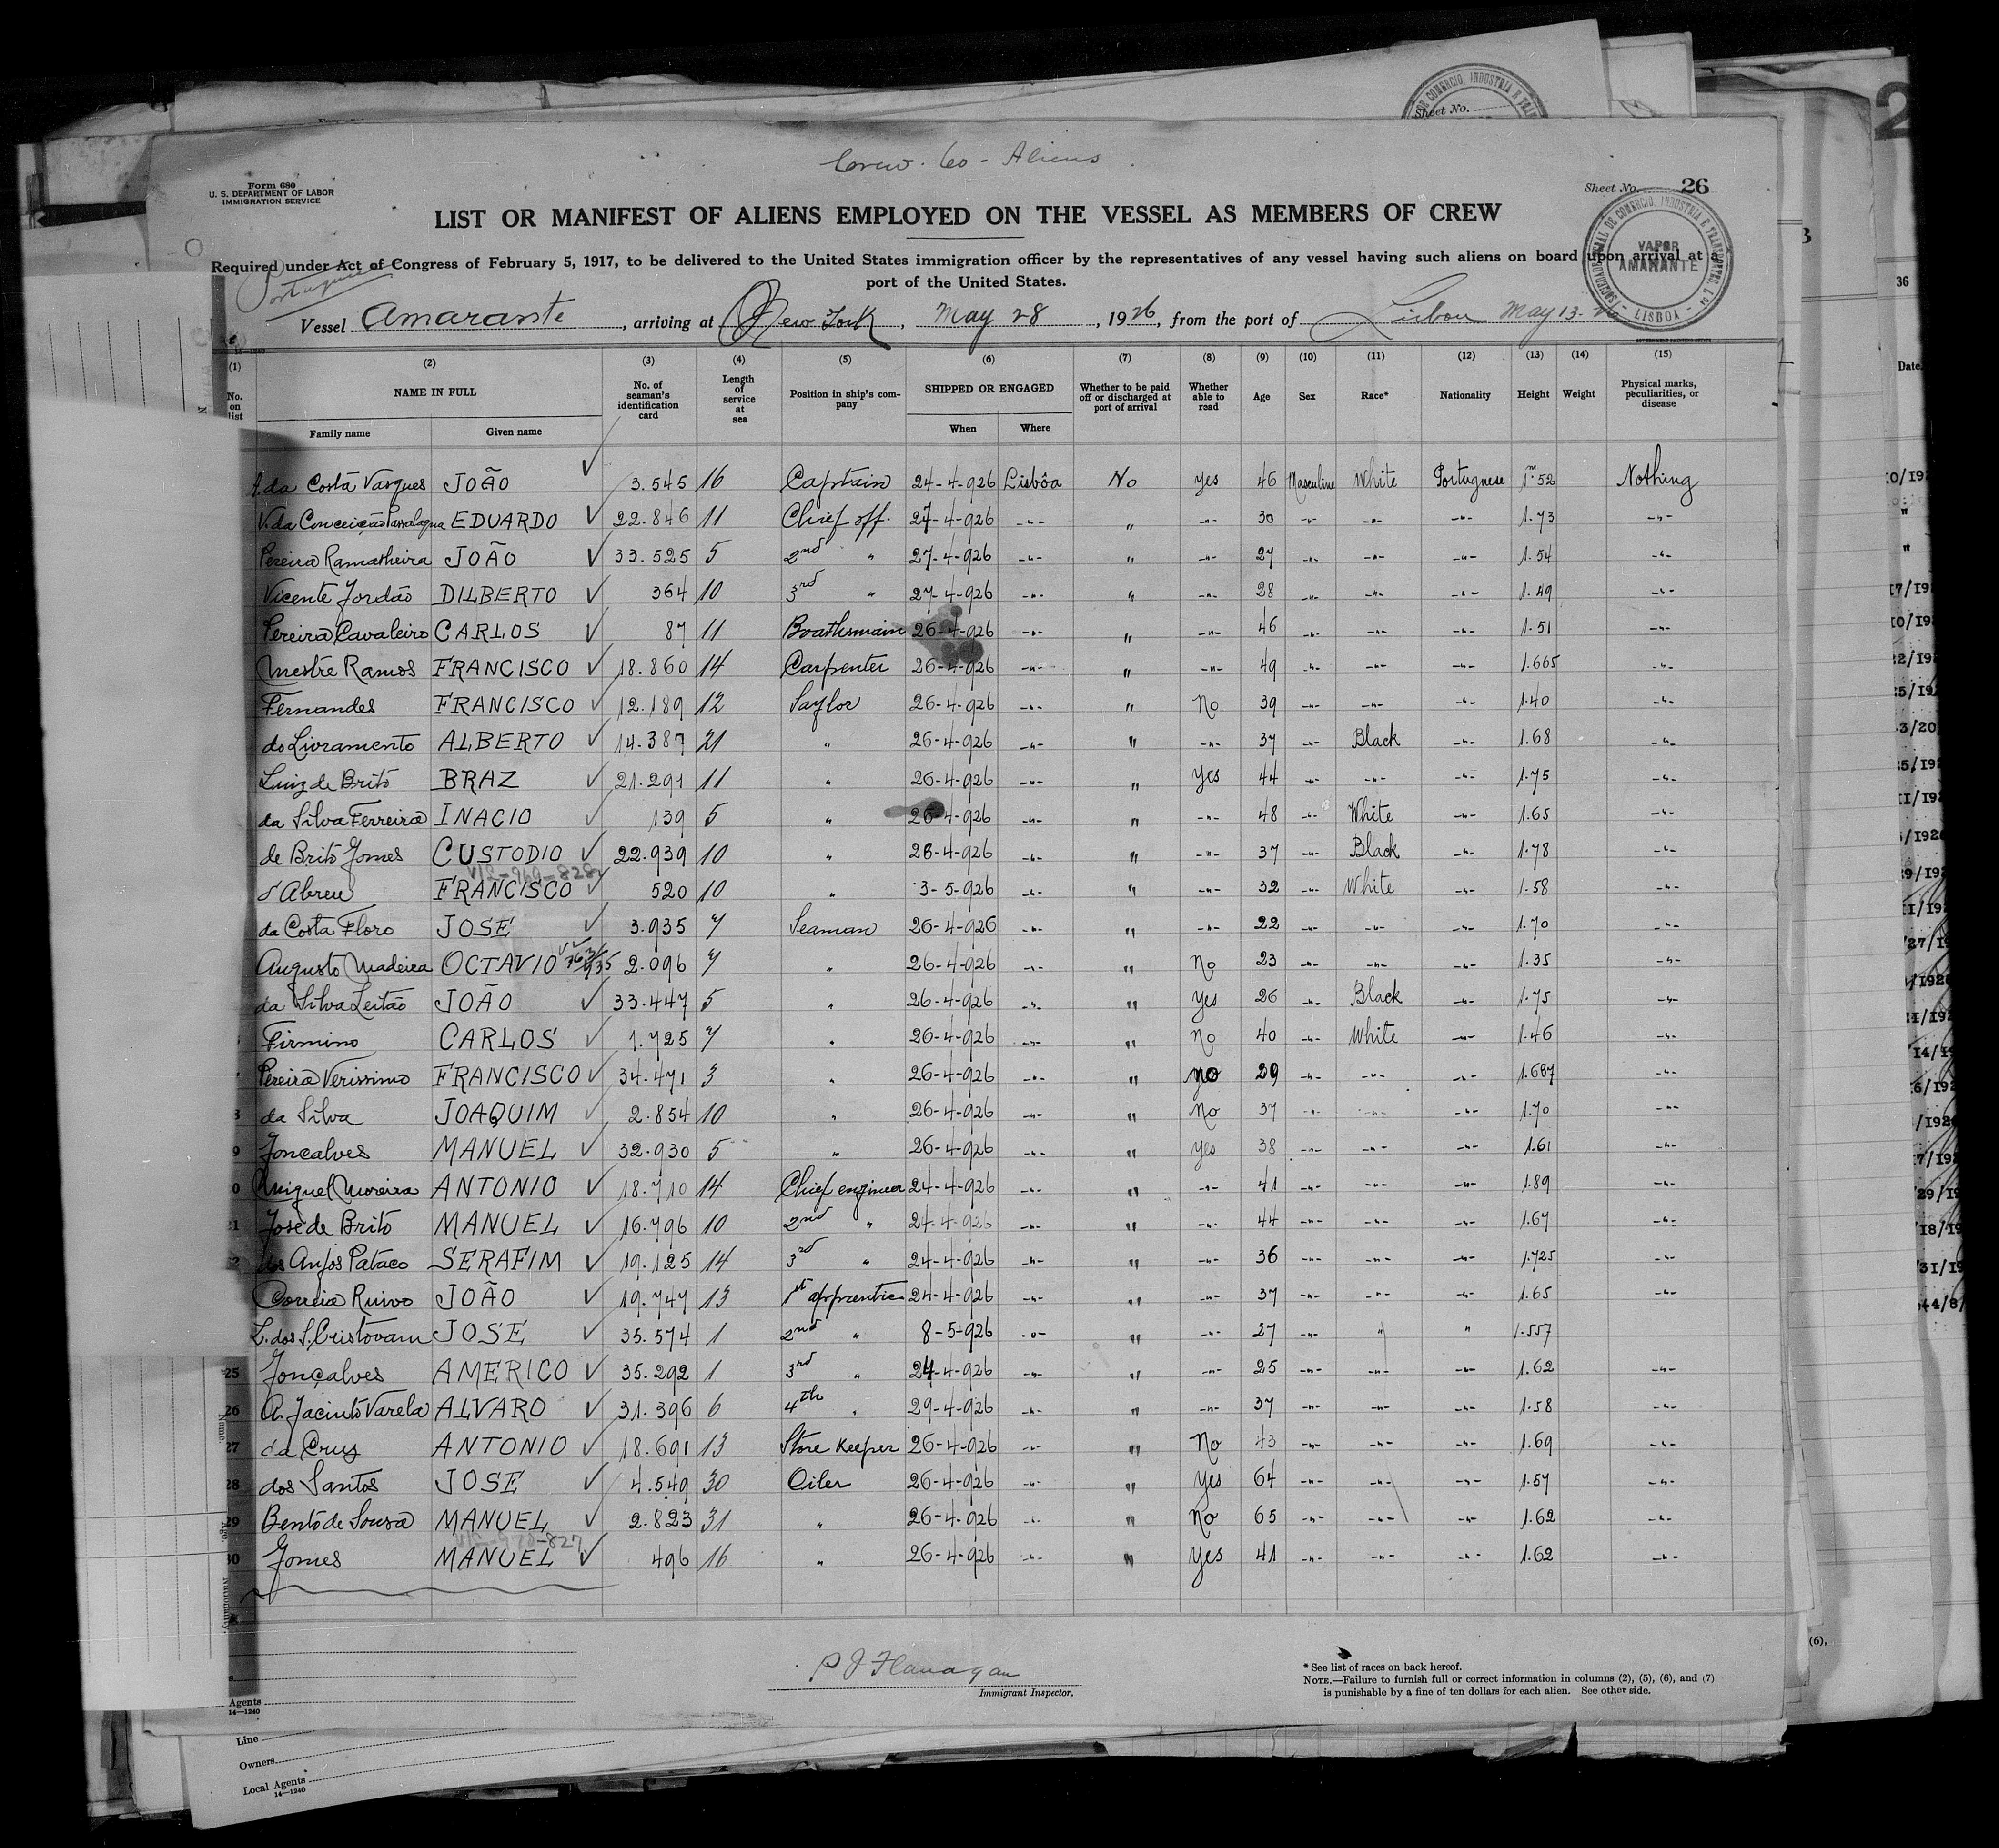 Crew. 60 - Aliens
Form 680
U. S. DEPARTMENT OF LABOR
IMMIGRATION SERVICE
Sheet No. 26
LIST OR MANIFEST OF ALIENS EMPLOYED ON THE VESSEL AS MEMBERS OF CREW
Required under Act of Congress of February 5, 1917, to be delivered to the United States immigration officer by the representatives of any vessel having such aliens on board upon arrival at a
port of the United States.
Portuguese
VAPOR
AMARANTE
LISBOA
Vessel Amarante, arriving at New York, May 28, 1926, from the port of Lisbon May 13-26
(1) (2) (3) (4) (5) (6) (7) (8) (9) (10) (11) (12) (13) (14) (15)
No. on list NAME IN FULL No. of seaman's identification card Length of service at sea Position in ship's company SHIPPED OR ENGAGED Whether to be paid off or discharged at port of arrival Whether able to read Age Sex Race* Nationality Height Weight Physical marks, peculiarities, or disease
Family name Given name When Where
A. da Costa Vasques JOÃO √ 3.545 16 Captain 24-4-926 Lisbôa No yes 46 Masculine White Portuguese 1m52 Nothing
V. da Conceição Passalaqua EDUARDO √ 22.846 11 Chief off. 27-4-926 -"- " -"- 30 -"- -"- -"- 1.73 -"-
Pereira Ramalheira JOÃO √ 33.525 5 2nd " 27-4-926 -"- " -"- 27 -"- -"- -"- 1.54 -"-
Vicente Jordão DILBERTO √ 364 10 3rd " 27-4-926 -"- " -"- 28 -"- -"- -"- 1.49 -"-
Pereira Cavaleiro CARLOS √ 87 11 Boathsmain 26-4-926 -"- " -"- 46 -"- -"- -"- 1.51 -"-
Mestre Ramos FRANCISCO √ 18.860 14 Carpenter 26-4-926 -"- " -"- 49 -"- -"- -"- 1.665 -"-
Fernandes FRANCISCO √ 12.189 12 Saylor 26-4-926 -"- " No 39 -"- -"- -"- 1.40 -"-
do Livramento ALBERTO √ 14.387 21 " 26-4-926 -"- " -"- 37 -"- Black -"- 1.68 -"-
Luiz de Brito BRAZ √ 21.291 11 " 26-4-926 -"- " yes 44 -"- -"- -"- 1.75 -"-
da Silva Ferreira INACIO √ 139 5 " 26-4-926 " -"- 48 -"- White -"- 1.65 -"-
de Brito Gomes CUSTODIO √ 22.939 10 " 26-4-926 -"- " -"- 37 -"- Black -"- 1.78 -"-
d'Abreu FRANCISCO √ 520 10 " 3-5-926 -"- " -"- 32 -"- White -"- 1.58 -"-
da Costa Floro JOSÉ √ 3.935 7 Seaman 26-4-926 -"- " -"- 22 -"- -"- -"- 1.70 -"-
Augusto Madeira OCTAVIO 2.096 7 " 26-4-926 -"- " No 23 -"- -"- -"- 1.35 -"-
da Silva Leitão JOÃO √ 33.447 5 " 26-4-926 -"- " yes 26 -"- Black -"- 1.75 -"-
Firmino CARLOS √ 1.725 7 " 26-4-926 -"- " No 40 -"- White -"- 1.46 -"-
Pereira Verissimo FRANCISCO √ 34.471 3 " 26-4-926 -"- " no 29 -"- -"- -"- 1.687 -"-
da Silva JOAQUIM √ 2.854 10 " 26-4-926 -"- " No 37 -"- -"- -"- 1.70 -"-
Gonçalves MANUEL √ 32.930 5 " 26-4-926 -"- " yes 38 -"- -"- -"- 1.61 -"-
Miguel Moreira ANTONIO √ 18.710 14 Chief engineer 24-4-926 -"- " -"- 41 -"- -"- -"- 1.89 -"-
21 José de Brito MANUEL √ 16.796 10 2nd " 24-4-926 -"- " -"- 44 -"- -"- -"- 1.67 -"-
dos Anjos Pataco SERAFIM √ 19.125 14 3rd " 24-4-926 -"- " -"- 36 -"- -"- -"- 1.725 -"-
Correia Ruivo JOÃO √ 19.747 13 1st apprentice 24-4-926 -"- " -"- 37 -"- -"- -"- 1.65 -"-
L. dos S. Cristovam JOSÉ √ 35.574 1 2nd " 8-5-926 -"- " -"- 27 -"- " " 1.557
25 Gonçalves AMERICO √ 35.292 1 3rd " 24-4-926 -"- " -"- 25 -"- -"- -"- 1.62 -"-
26 A. Jacinto Varela ALVARO √ 31.396 6 4th " 29-4-926 -"- " -"- 37 -"- -"- -"- 1.58 -"-
27 da Cruz ANTONIO √ 18.691 13 Store keeper 26-4-926 -"- " No 43 -"- -"- -"- 1.69 -"-
28 dos Santos JOSÉ √ 4.549 30 Oiler 26-4-926 -"- " yes 64 -"- -"- -"- 1.57 -"-
29 Bento de Sousa MANUEL √ 2.823 31 " 26-4-926 -"- " No 65 -"- -"- -"- 1.62 -"-
30 Gomes MANUEL √ 496 16 " 26-4-926 -"- " yes 41 -"- -"- -"- 1.62 -"-
P J Flanagan
Immigrant Inspector.
* See list of races on back hereof.
NOTE.—Failure to furnish full or correct information in columns (2), (5), (6), and (7)
is punishable by a fine of ten dollars for each alien. See other side.
Agents
14—1240
Line
Owners
Local Agents
14—1240